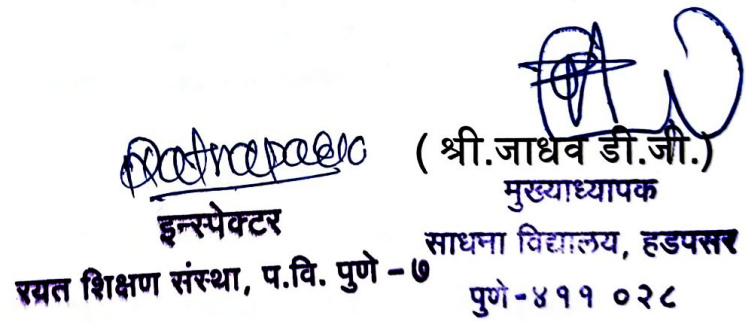 इन्स्पेक्टर
रयत शिक्षण संस्था, प.वि. पुणे - ७
( श्री.जाधव डी.जी.)
मुख्याध्यापक
साधना विद्यालय, हडपसर
पुणे-४११ ०२८